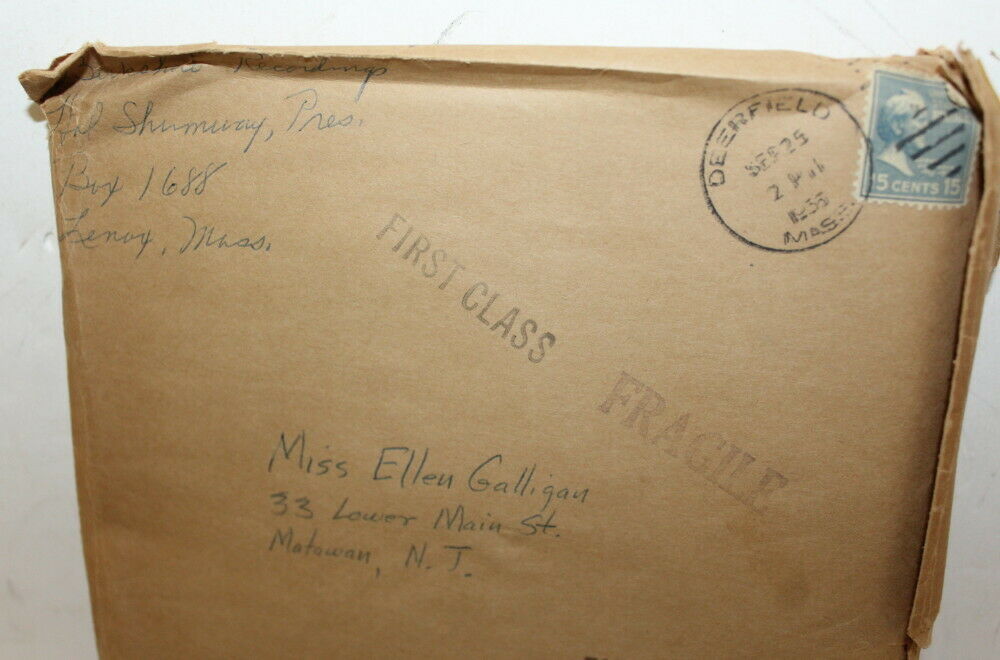 Recordings
Hal Shumway, Pres.
Box 1688
Lenox, Mass.
DEERFIELD
SEP 25
2 PM
1955
MASS.
15 CENTS 15
FIRST CLASS
FRAGILE
Miss Ellen Galligan
33 Lower Main St.
Matawan, N. J.